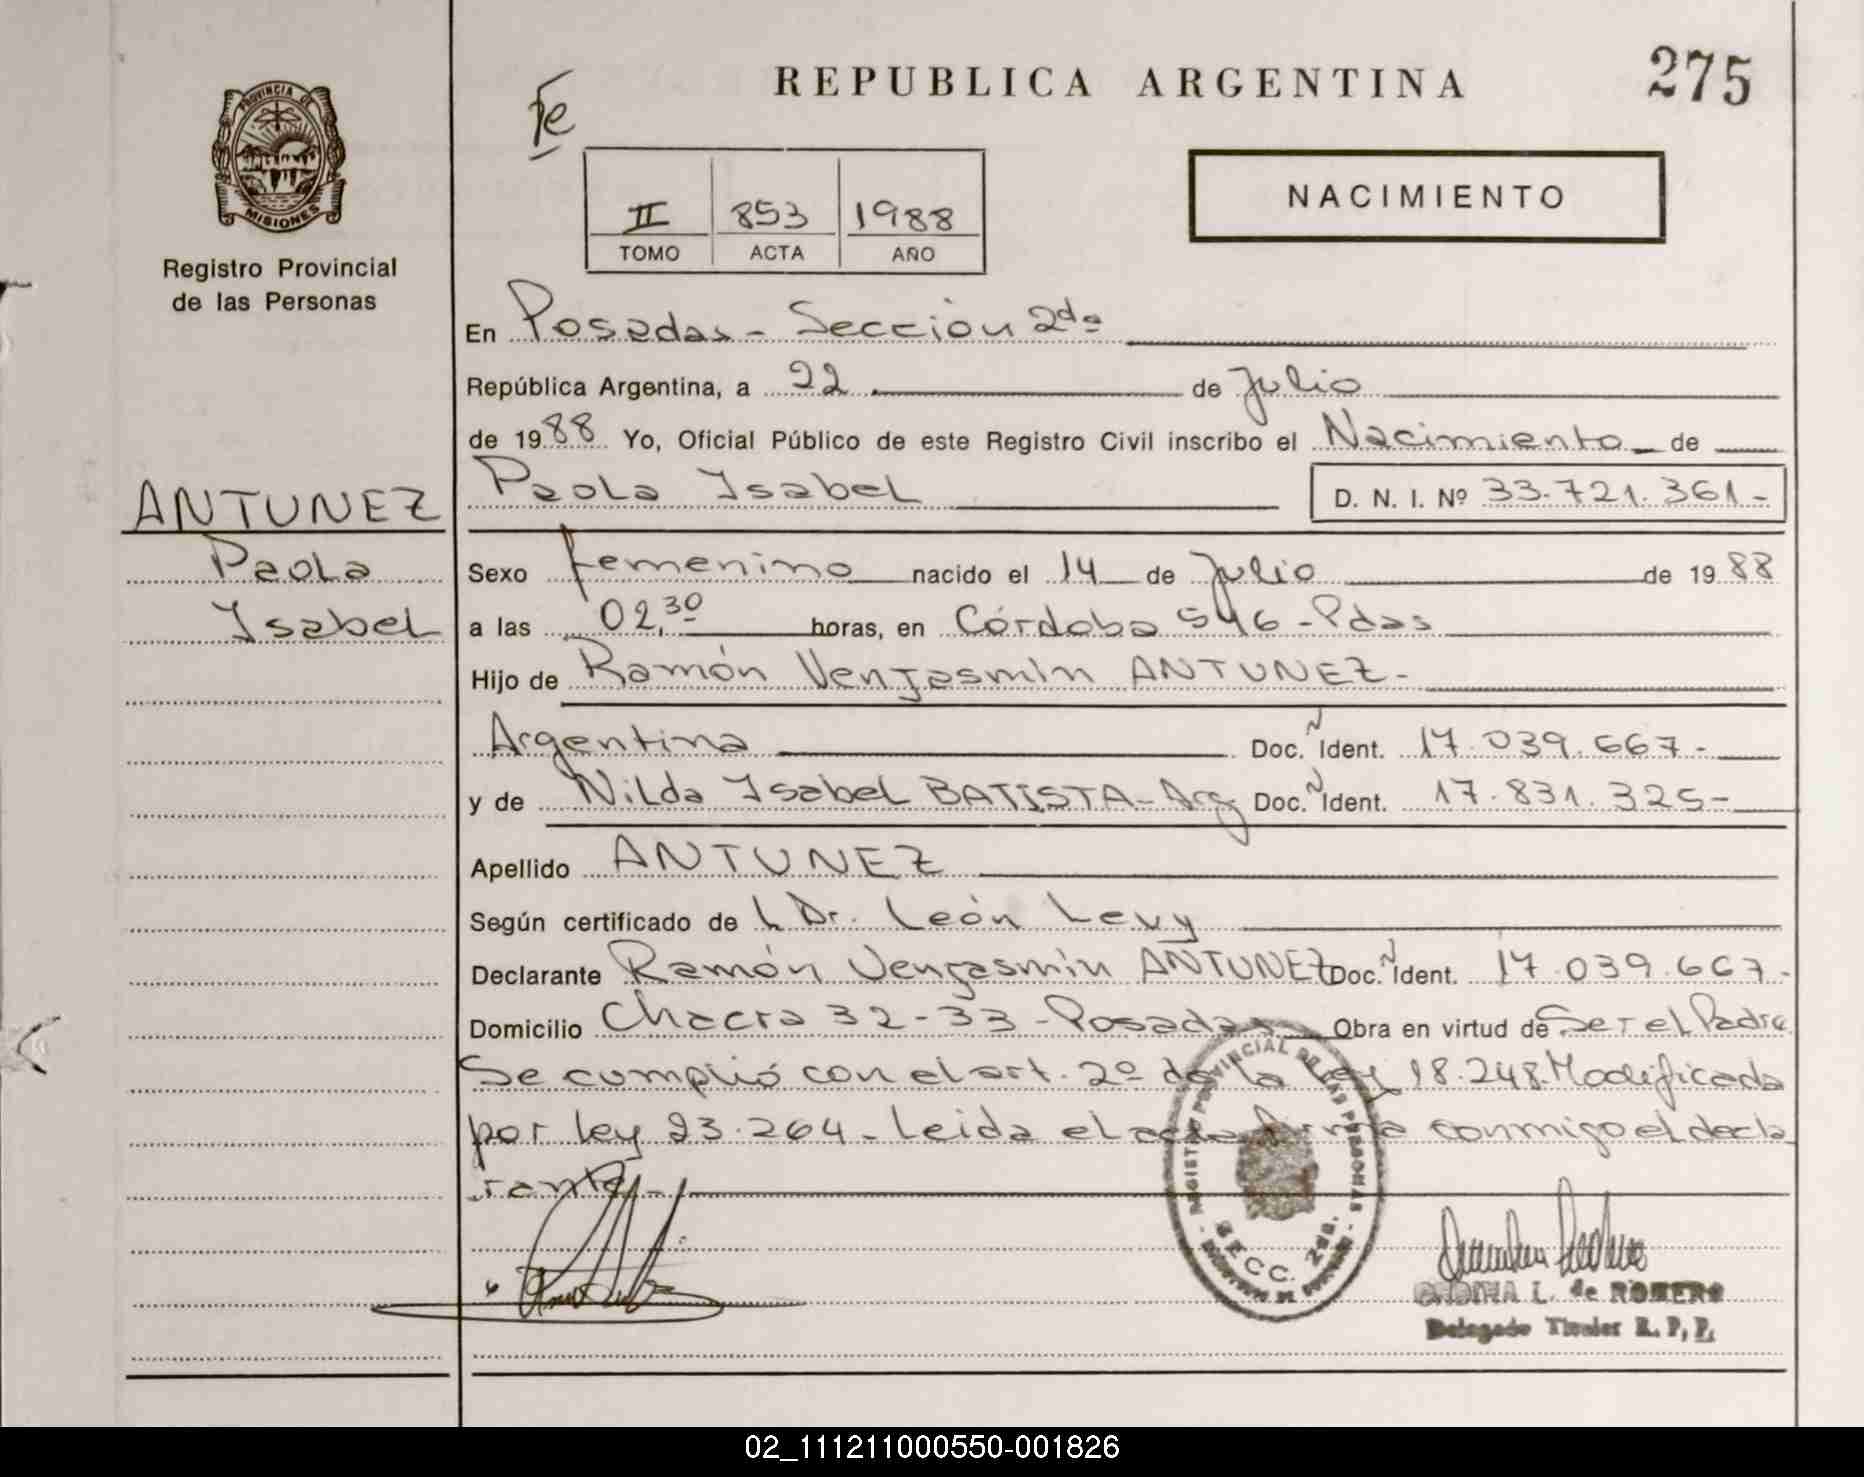 REPUBLICA ARGENTINA
275
Fe
PROVINCIA DE
MISIONES
Registro Provincial
de las Personas
II 853 1988
TOMO ACTA AÑO
NACIMIENTO
En Posadas - Sección 2da
República Argentina, a 22 de Julio
de 1988 Yo, Oficial Público de este Registro Civil inscribo el Nacimiento de
Paola Isabel D. N. I. Nº 33.721.361-
ANTUNEZ
Paola
Isabel
Sexo femenino nacido el 14 de Julio de 1988
a las 02,30 horas, en Córdoba 546 - Pdas
Hijo de Ramón Venjasmín ANTUNEZ-
Argentina Doc. N Ident. 17.039.667-
y de Nilda Isabel BATISTA - Arg Doc. N Ident. 17.831.325-
Apellido ANTUNEZ
Según certificado de L Dr. León Levy
Declarante Ramón Venjasmín ANTUNEZ Doc. N Ident. 17.039.667-
Domicilio Chacra 32-33 - Posadas Obra en virtud de Ser el Padre
Se cumplió con el art. 2º de la Ley 18.248. Modificada
por ley 23.264 - Leida el acta firma conmigo el decla
rante -
REGISTRO PROVINCIAL DE LAS PERSONAS
SECC. 2da.
L. de ROMERO
Delegado Titular R. P. P.
02_111211000550-001826